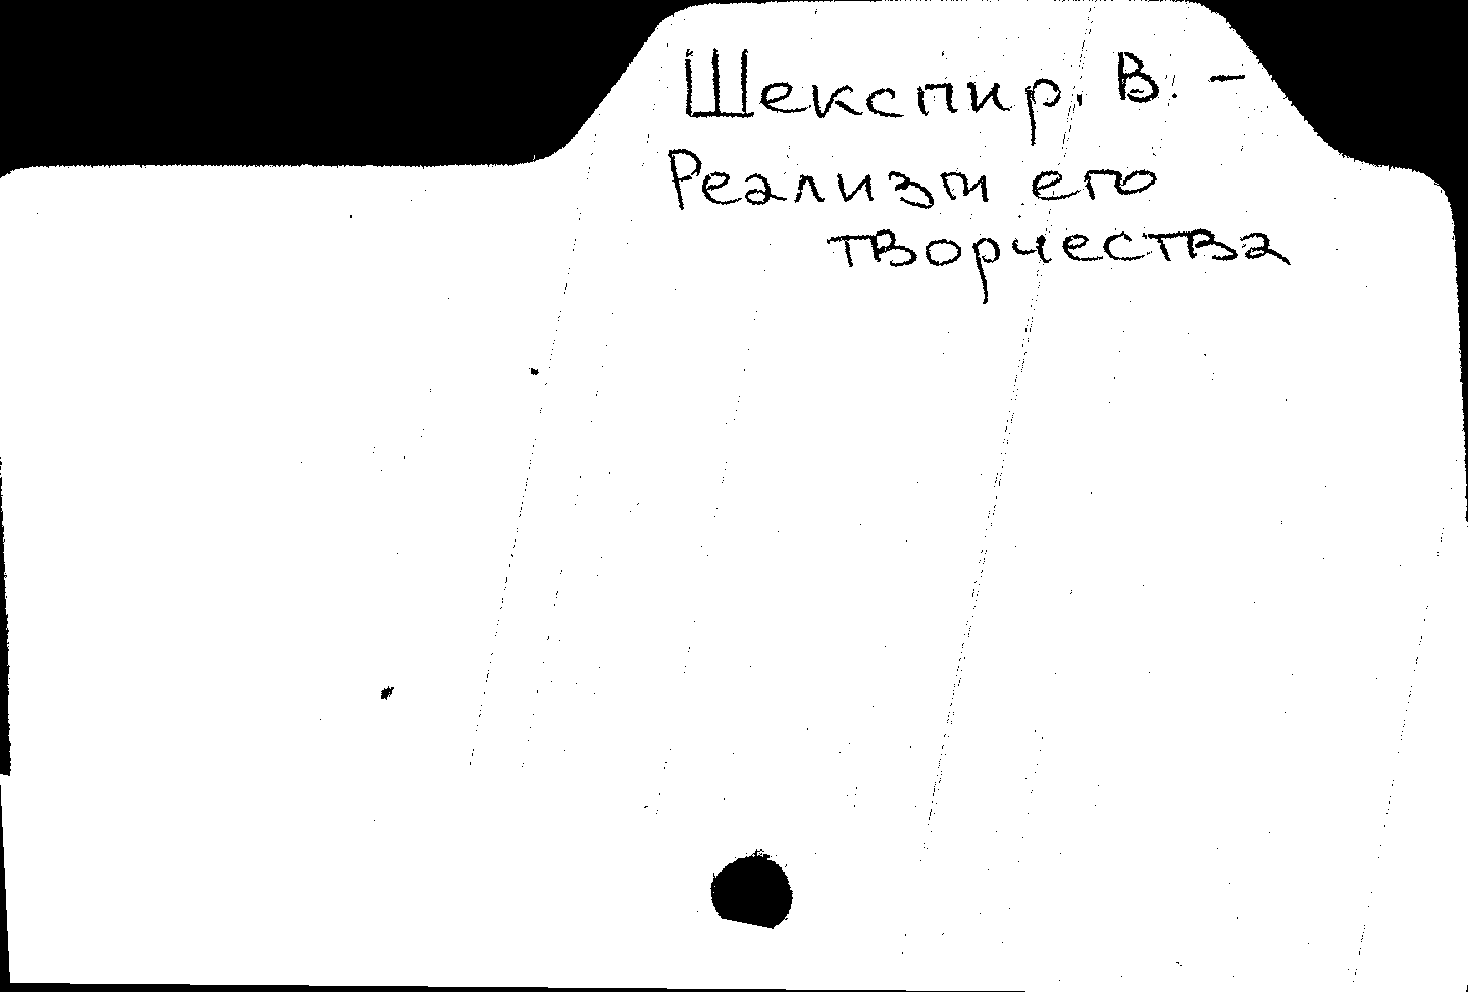 Шекспир. В. –
Реализм его
творчества